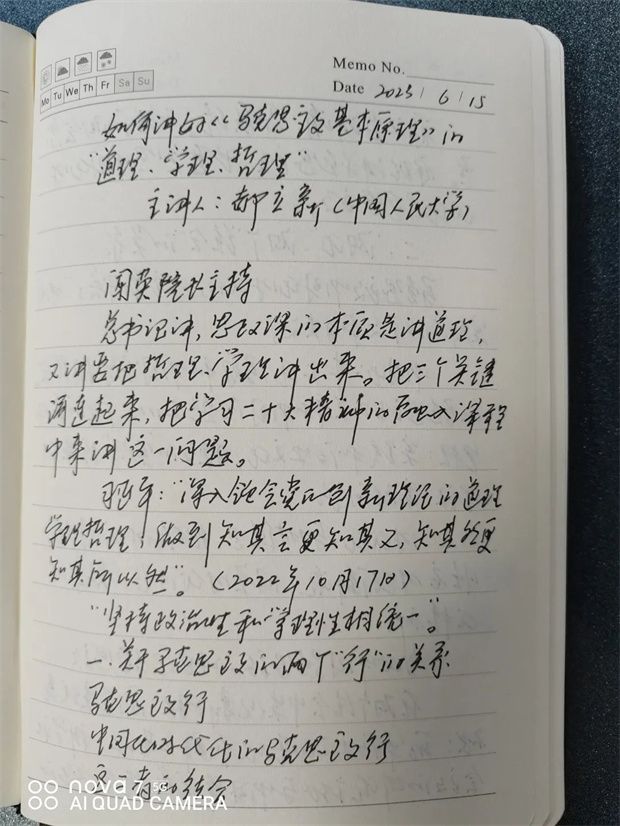 Memo No.
Date 2023 / 6 / 15
Mo Tu We Th Fr Sa Su
如何讲好《马克思主义基本原理》的
“道理、学理、哲理”
主讲人：郝立新（中国人民大学）
闫英院长主持
总书记讲，思政课的本质是讲道理，
又讲要把哲理、学理讲出来。把三个关键
词连起来，把学习二十大精神的融入课程
中来讲这一问题。
习近平：“深入领会党的创新理论的道理
学理哲理，做到知其言更知其义，知其然更
知其所以然”。（2022年10月17日）
“坚持政治性和学理性相统一”。
一、关于马克思主义的两个“行”的关系
马克思主义行
中国化时代化的马克思主义行
这二者的结合
nova 7 5G
AI QUAD CAMERA